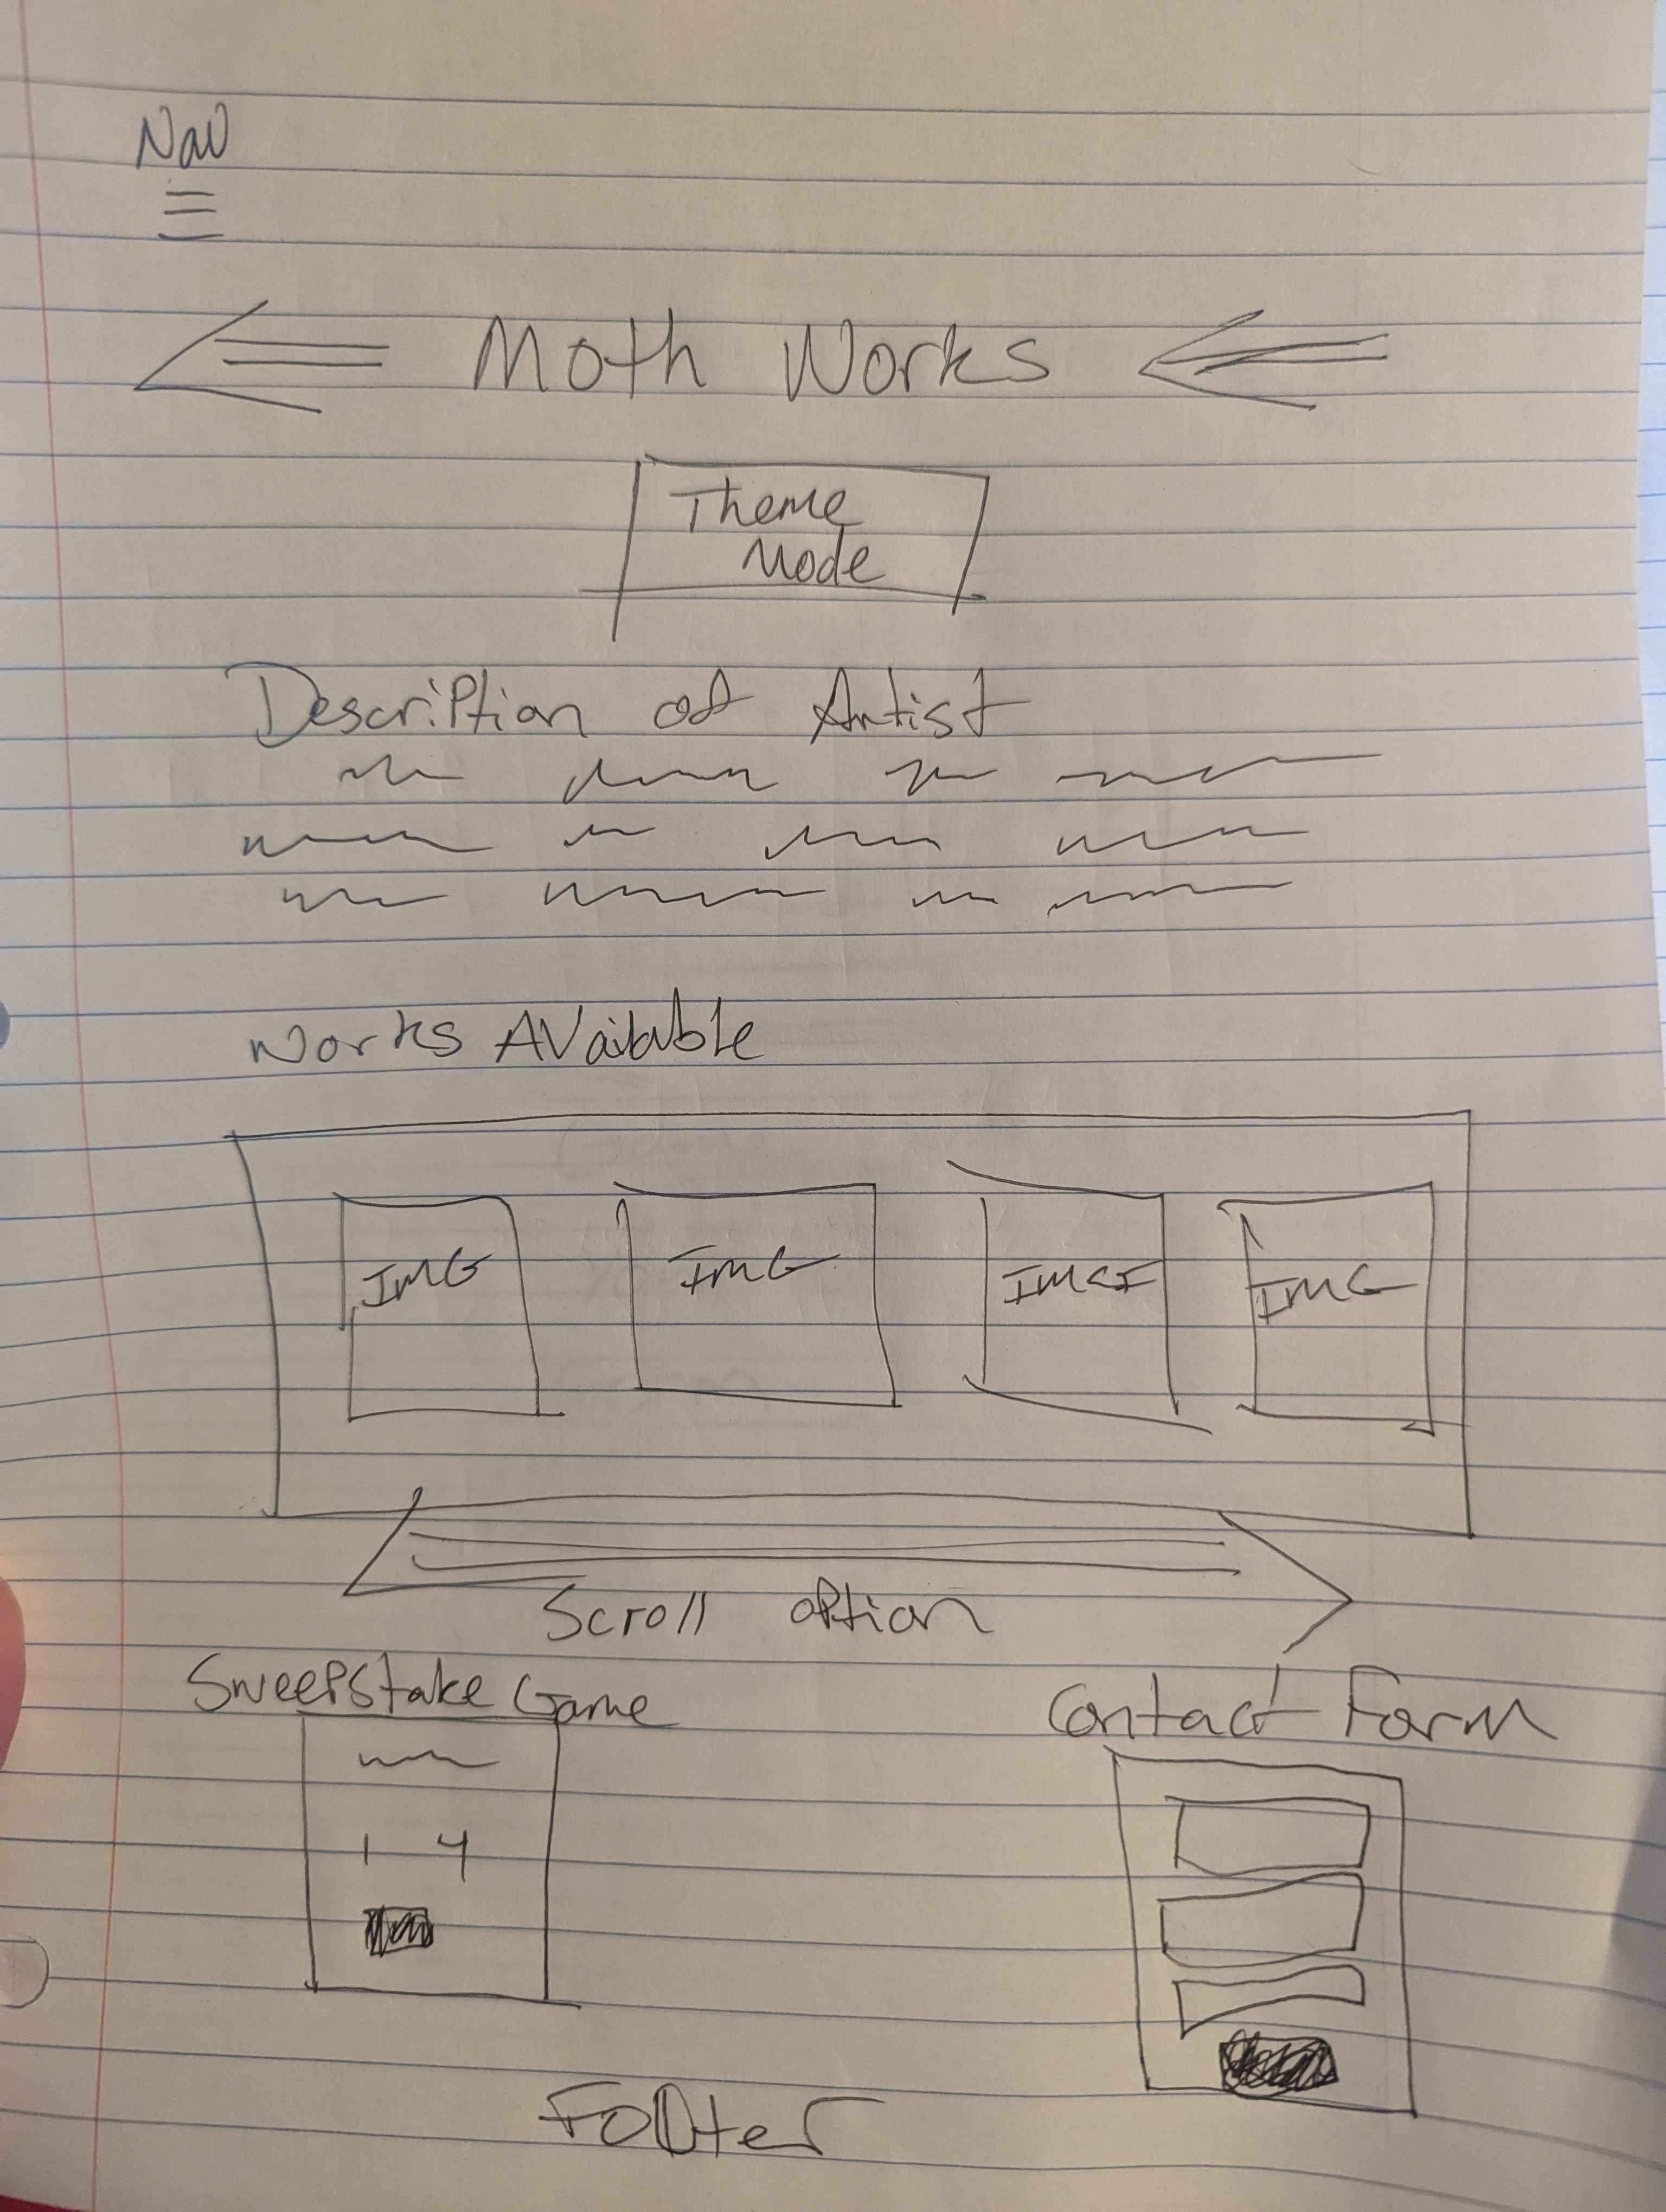 Nav
Moth Works
Theme
Mode
Description of Artist
Works Available
IMG IMG IMG IMG
Scroll option
Sweepstake Game
Contact Form
1 4
Footer